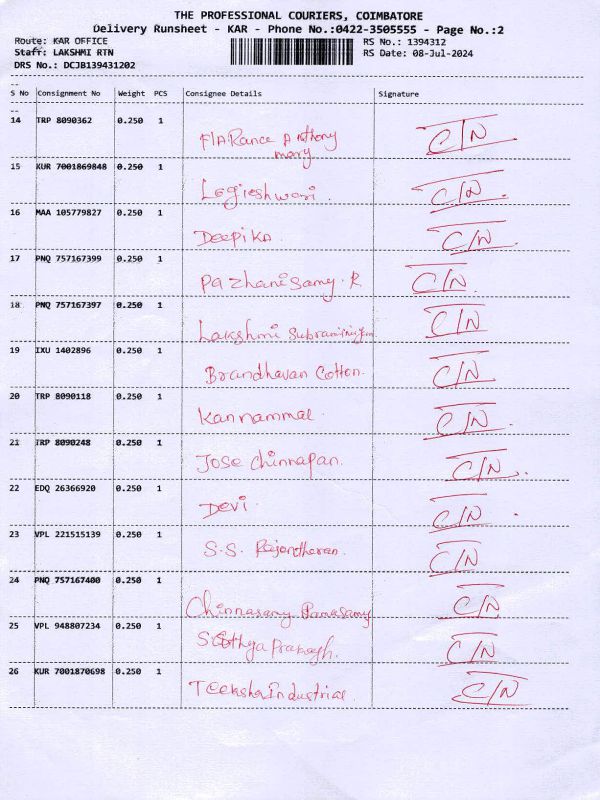 THE PROFESSIONAL COURIERS, COIMBATORE
Delivery Runsheet - KAR - Phone No.:0422-3505555 - Page No.:2
Route: KAR OFFICE
RS No.: 1394312
Staff: LAKSHMI RTN
RS Date: 08-Jul-2024
DRS No.: DCJB139431202
S No Consignment No Weight PCS Consignee Details Signature
14 TRP 8090362 0.250 1 Anthony mary C/N
15 KUR 7001869848 0.250 1 Logieshwari. C/N
16 MAA 105779827 0.250 1 Deepika. C/N
17 PNQ 757167399 0.250 1 Pazhanisamy. R C/N
18 PNQ 757167397 0.250 1 Lakshmi C/N
19 IXU 1402896 0.250 1 Brandhavan Cotton. C/N
20 TRP 8090118 0.250 1 Kannammal. C/N
21 TRP 8090248 0.250 1 Jose Chinnapan. C/N
22 EDQ 26366920 0.250 1 Devi. C/N
23 VPL 221515139 0.250 1 S.S. C/N
24 PNQ 757167400 0.250 1 Chinnasamy C/N
25 VPL 948807234 0.250 1 C/N
26 KUR 7001870698 0.250 1 Teeksha Industrial. C/N